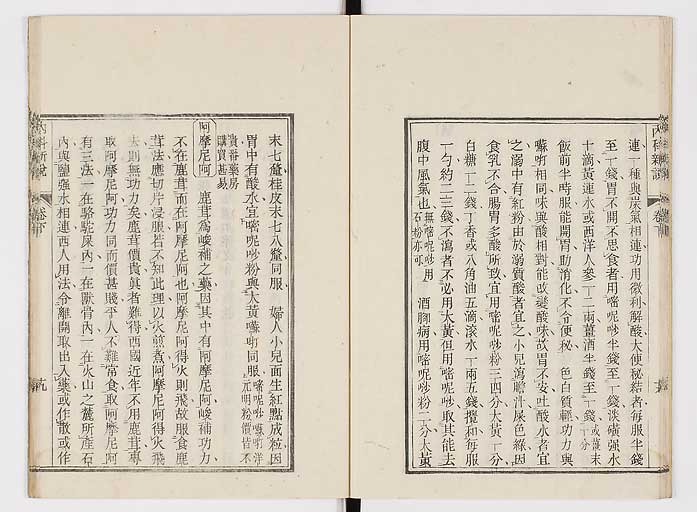 連一種與炭氣相連功用微利解酸大便秘結者每服半錢
至一錢胃不開不思食者用嘧呢唦半錢至一錢淡磺强水
十滴黃連水或西洋人參一二兩薑酒半錢至一錢或薑末十分
飯前半時服能開胃助消化不令便秘 色白質輕功力與
囌唎相同味與酸相對能改變酸味故胃不安吐酸水者宜
之溺中有紅粉由於溺質酸者宜之小兒瀉膽汁屎色綠因
食乳不合腸胃多酸所致宜用嘧呢唦粉三四分大黃一分
白糖十二錢丁香或八角油五滴滾水十兩五錢攪和每服
一勺約二三錢不瀉者不必用大黃但用嘧呢唦取其能去
腹中風氣也無嘧呢唦用石粉亦可 酒腳病用嘧呢唦粉二分大黃
末七釐桂皮末七八釐同服 婦人小兒面生紅點成粒因
胃中有酸水宜嘧呢唦粉與大黃囌唎同服嘧呢唦囌唎洋元明粉價皆不
貴番藥房購買甚易
阿摩尼阿 鹿茸為峻補之藥因其中有阿摩尼阿峻補功力
不在鹿茸而在阿摩尼阿也阿摩尼阿得火則飛故服食鹿
茸法應切片浸服若不知此理以火煎煮阿摩尼阿得火飛
去則無功力矣鹿茸價貴真者難得西國近年不用鹿茸專
取阿摩尼阿功力同而價甚賤平人不難常食取阿摩尼阿
有三法一在駱駝屎內一在獸骨內一在火山之麓所產石
內與鹽强水相連西人用法分離開取出入藥或作散或作
內科新說
卷下
九